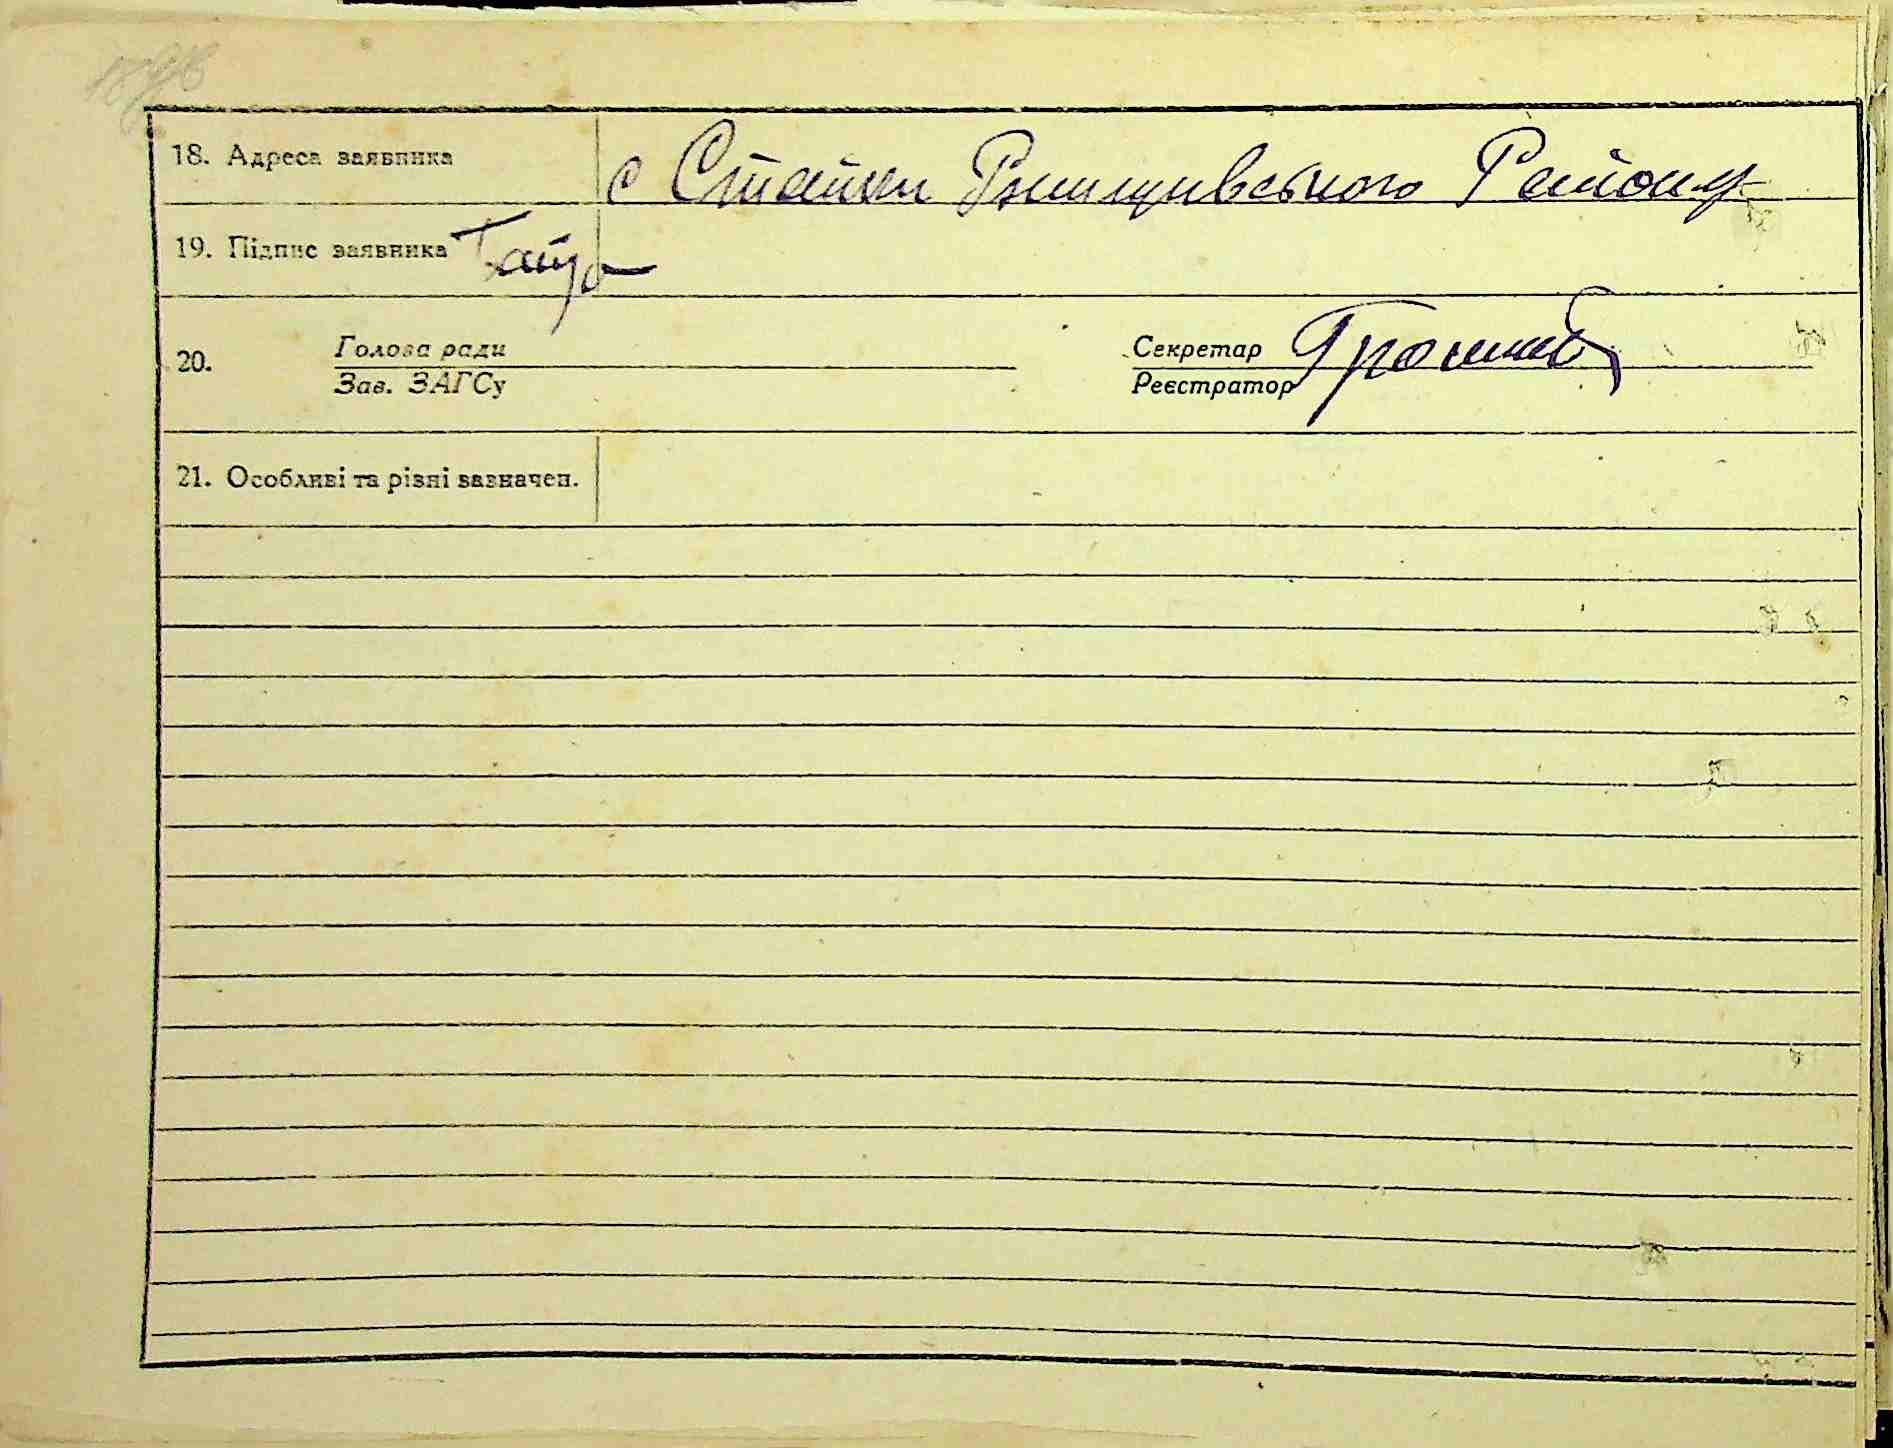 18. Адреса заявника с Стайки Ржищівського Району
19. Підпис заявника
20. Голова ради Секретар
Зав. ЗАГСу Реєстратор
21. Особливі та різні зазначен.